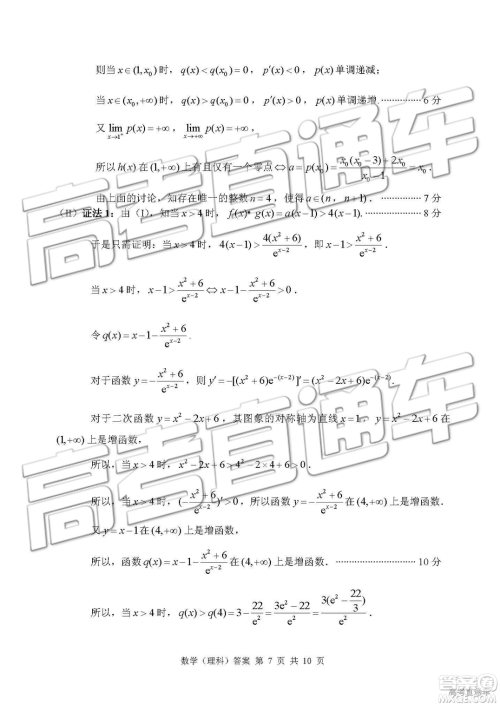 则当 x∈(1, x₀) 时，q(x)<q(x₀)=0，p′(x)<0，p(x) 单调递减；
当 x∈(x₀, +∞) 时，q(x)>q(x₀)=0，p′(x)>0，p(x) 单调递增. ············ 6 分
又 lim_{x→1⁺} p(x)=+∞，lim_{x→+∞} p(x)=+∞，
所以 h(x) 在 (1, +∞) 上有且仅有一个零点 ⇔ a = p(x₀) = (x₀(x₀−3)+2x₀)/(x₀−1) = x₀.
由上面的讨论，知存在唯一的整数 n=4，使得 a∈(n, n+1). ············ 7 分
(II) 证法 1：由 (I)，知当 x>4 时，f(x) g(x) = a(x−1)>4(x−1). ············ 8 分
于是只需证明：当 x>4 时，4(x−1)>4(x²+6)/e^{x−2}，即 x−1>(x²+6)/e^{x−2}．
当 x>4 时，x−1>(x²+6)/e^{x−2} ⇔ x−1−(x²+6)/e^{x−2}>0．
令 q(x)=x−1−(x²+6)/e^{x−2}．
对于函数 y=−(x²+6)/e^{x−2}，则 y′=−[(x²+6)e^{−(x−2)}]′=(x²−2x+6)e^{−(x−2)}．
对于二次函数 y=x²−2x+6，其图象的对称轴为直线 x=1．y=x²−2x+6 在
(1, +∞) 上是增函数，
所以，当 x>4 时，x²−2x+6>4²−2×4+6>0．
所以，当 x>4 时，(−(x²+6)/e^{x−2})′>0，所以函数 y=−(x²+6)/e^{x−2} 在 (4, +∞) 上是增函数．
又 y=x−1 在 (4, +∞) 上是增函数，
所以，函数 q(x)=x−1−(x²+6)/e^{x−2} 在 (4, +∞) 上是增函数． ············ 10 分
所以，当 x>4 时，q(x)>q(4)=3−22/e²=(3e²−22)/e²=3(e²−22/3)/e²．
数学（理科）答案 第 7 页 共 10 页
高考直通车
高考直通车
高考直通车